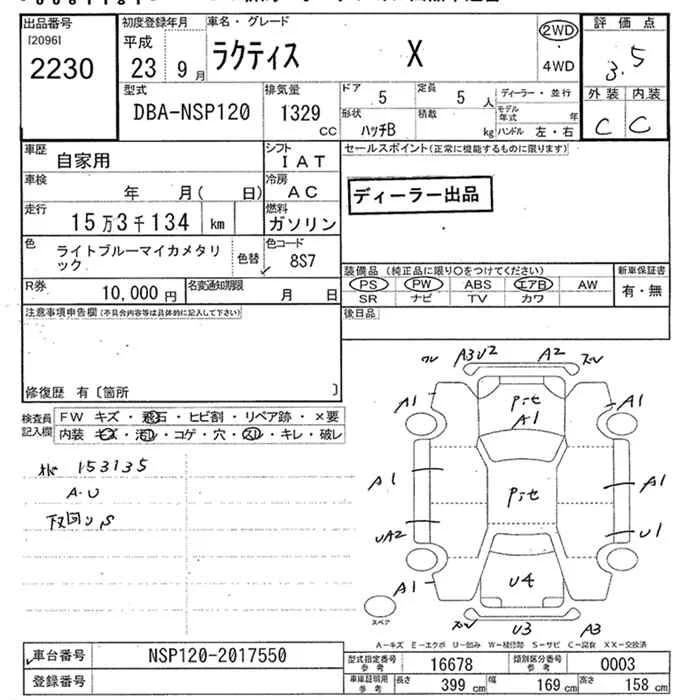 出品番号
[2096]
2230
初度登録年月
平成
23 9月
車名・グレード
ラクティス X
2WD
4WD
評価点
3.5
外装 内装
C C
型式
DBA-NSP120
排気量
1329
cc
ドア 5
定員 5 人
形状 ハッチB
積載 kg
ディーラー・並行
モデル年式 年
ハンドル 左・右
車歴
自家用
シフト
IAT
車検
年 月( 日)
冷房
AC
走行
15万3千134 km
燃料
ガソリン
色
ライトブルーマイカメタリック
色替
色コード
8S7
R券
10,000円
名変通知期限
月 日
セールスポイント(正常に機能するものに限ります)
ディーラー出品
装備品(純正品に限り○をつけてください)
新車保証書
PS PW ABS エアB AW
SR ナビ TV カワ
有・無
注意事項申告欄(不具合内容等は具体的に記入して下さい)
後日品
修復歴 有〔箇所 〕
検査員記入欄
FW キズ・飛石・ヒビ割・リペア跡・×要
内装 キズ・汚レ・コゲ・穴・スレ・キレ・破レ
153135
A・U
下回りS
A3U2 A2
A1 Pit A1
A1
A1 Pit A1
UA2 U1
A1 U4
スペア
U3 A3
A-キズ E-エクボ U-凹み W-補修跡 S-サビ C-腐食 XX-交換済
車台番号
NSP120-2017550
登録番号
型式指定番号 参考
16678
類別区分番号 参考
0003
車庫証明用 参考
長さ 399 cm
幅 169 cm
高さ 158 cm